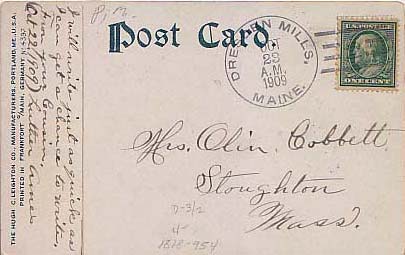 P. M.
Post Card.
DRESDEN MILLS,
OCT
23
A.M.
1909
MAINE.
U.S. POSTAGE
ONE CENT
Mrs. Olin Cobbett
Stoughton
Mass.
D-3/2
4-
1818-954
I will write just as quick as
I can get a chance to write,
From your Cousin,
Oct. 22, 1909 Luther Ames
THE HUGH C. LEIGHTON CO., MANUFACTURERS, PORTLAND, ME., U.S.A.
PRINTED IN FRANKFORT o/MAIN, GERMANY